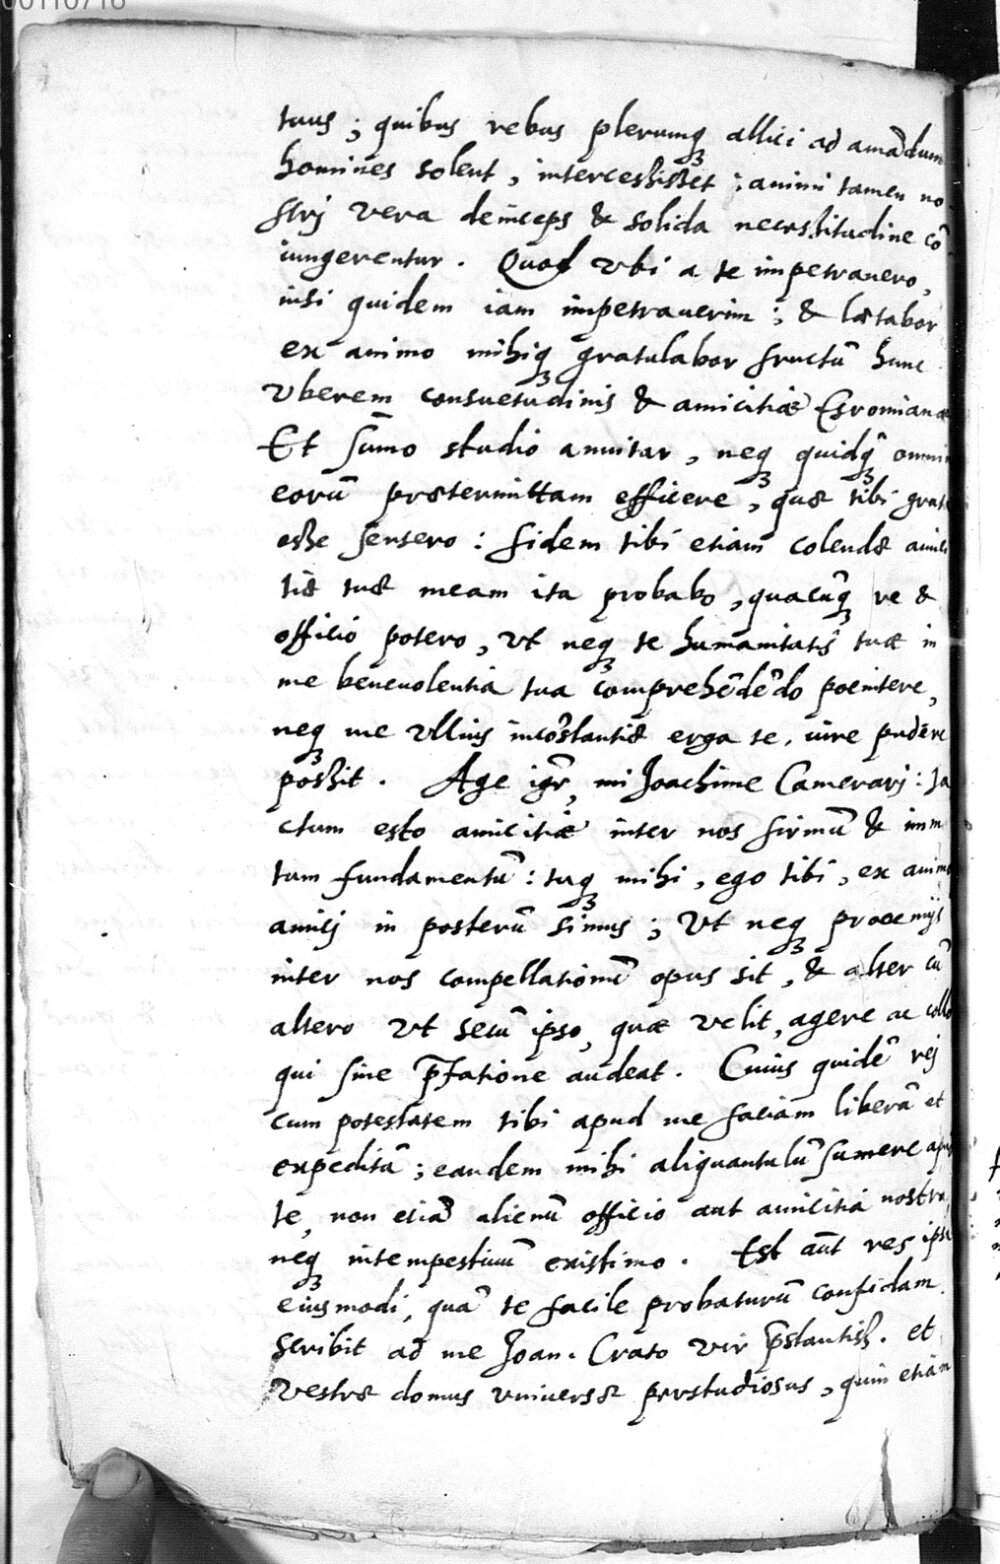 00110716
tuus; quibus rebus plerumqꝫ allici ad amādum
homines solent, intercessisset; animi tamen no
strj vera deinceps & solida necessitudine cō
iungerentur. Quod vbi a te impetrauero,
nisi quidem iam impetrauerim; & lætabor
ex animo mihiqꝫ gratulabor fructū hunc
vberem consuetudinis & amicitiæ Esromianæ
Et sūmo studio annitar, neqꝫ quidq̃ꝫ omnin
eorū prætermittam efficere, quæ tibi grata
esse sensero: fidem tibi etiam colendæ amici
tiæ tuæ meam ita probabo, quacūqꝫ re &
officio potero, vt neqꝫ te humanitatis tuæ in
me beneuolentia tua comprehēdēdo poenitere,
neqꝫ me vllius incōstantiæ erga te, iure pudere
possit. Age igr̃, mi Joachime Camerarj: Ja
ctum esto amicitiæ inter nos firmū & imm
tum fundamentū: tuqꝫ mihi, ego tibi, ex animo
amicj in posterū simus; Vt neqꝫ prooemijs
inter nos compellationū opus sit, & alter cū
altero vt secū ipso, quæ velit, agere ac collo
qui sine p̄fatione audeat. Cuius quidē rej
cum potestatem tibi apud me faciam liberā et
expeditā; eandem mihi aliquantulū sumere apud
te, non etiā alienū officio aut amicitia nostra,
neqꝫ intempestiuū existimo. Est aūt res ipsa
eiusmodi, quā te facile probaturū confidam.
Scribit ad me Joan. Crato vir p̄stantiss. et
vestræ domus vniuersæ perstudiosus, quin etiam